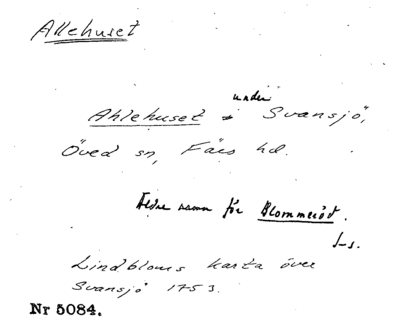 Allehuset
under
Ahlehuset Svansjö,
Öved sn, Färs hd.
Äldre namn för Blommeröd.
J-s.
Lindbloms karta över
Svansjö 1753.
Nr 5084.